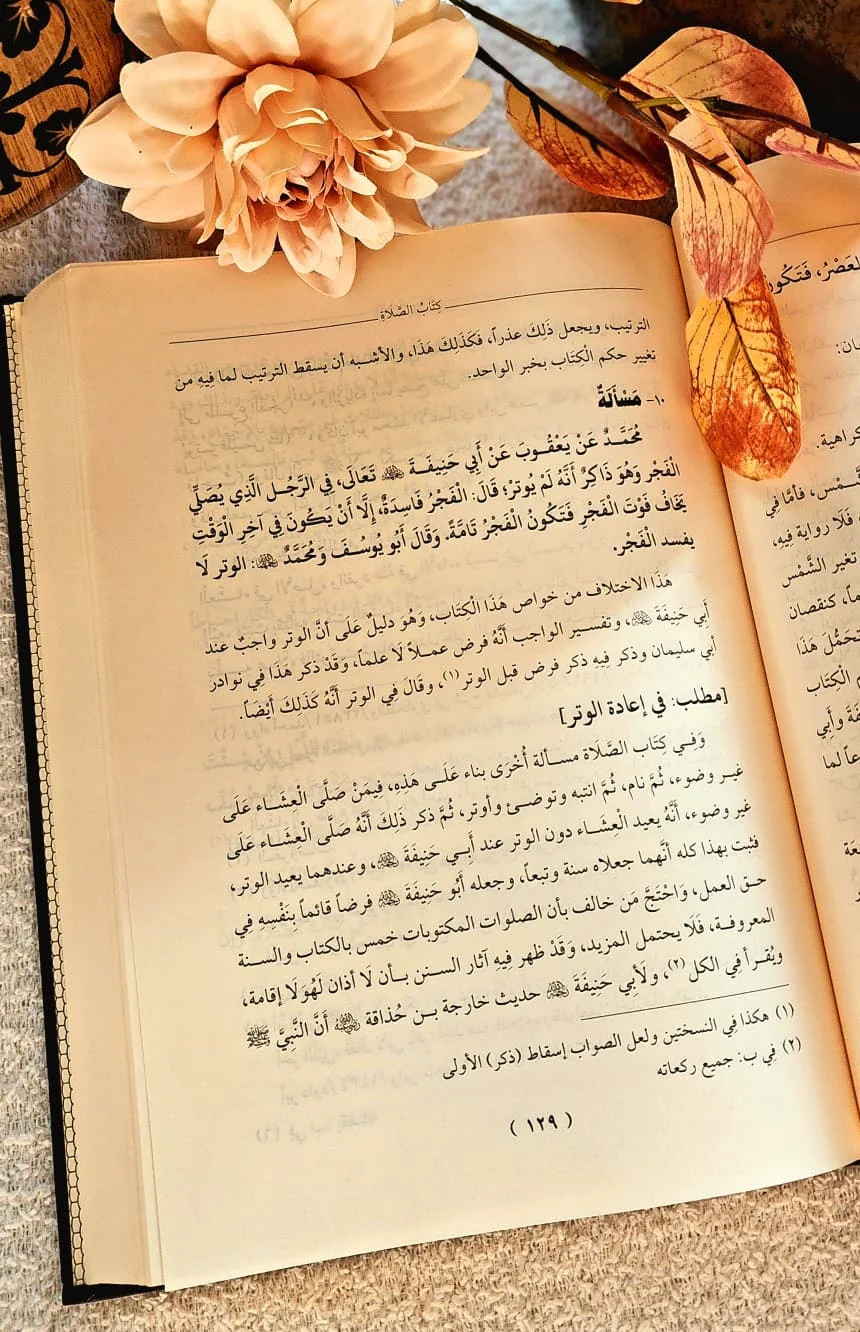 كِتَابُ الصَّلَاةِ
الترتيب، ويجعل ذَلِكَ عذراً، فَكَذَلِكَ هَذَا، والأشبه أن يسقط الترتيب لما فِيهِ من
تغيير حكم الْكِتَاب بخبر الواحد.
١٠- مَسْأَلَةٌ
مُحَمَّدٌ عَنْ يَعْقُوبَ عَنْ أَبِي حَنِيفَةَ ﵁ تَعَالَى، فِي الرَّجُلِ الَّذِي يُصَلِّي
الْفَجْرَ وَهُوَ ذَاكِرٌ أَنَّهُ لَمْ يُوتِرْ؛ قَالَ: الْفَجْرُ فَاسِدَةٌ، إِلَّا أَنْ يَكُونَ فِي آخِرِ الْوَقْتِ
يَخَافُ فَوْتَ الْفَجْرِ فَتَكُونُ الْفَجْرُ تَامَّةً. وَقَالَ أَبُو يُوسُفَ وَمُحَمَّدٌ ﵀: الوتر لَا
يفسد الْفَجْر.
هَذَا الاختلاف من خواص هَذَا الْكِتَاب، وَهُوَ دليلٌ عَلَى أنَّ الوتر واجبٌ عند
أَبِي حَنِيفَةَ ﵁، وتفسير الواجب أَنَّهُ فرض عملاً لَا علماً، وَقَدْ ذكر هَذَا فِي نوادر
أبي سليمان وذكر فِيهِ ذكر فرض قبل الوتر(١)، وقالَ فِي الوتر أَنَّهُ كَذَلِكَ أَيْضَاً.
[مطلب: في إعادة الوتر]
وَفِي كِتَاب الصَّلَاة مسألة أُخْرَى بناء عَلَى هَذِهِ، فِيمَنْ صَلَّى الْعِشَاء عَلَى
غير وضوء، ثُمَّ نام، ثُمَّ انتبه وتوضئ وأوتر، ثُمَّ ذكر ذَلِكَ أَنَّهُ صَلَّى الْعِشَاء عَلَى
غير وضوء، أَنَّهُ يعيد الْعِشَاء دون الوتر عند أَبِي حَنِيفَةَ ﵁، وعندهما يعيد الوتر،
فثبت بهذا كله أنَّهما جعلاه سنة وتبعاً، وجعله أَبُو حَنِيفَةَ ﵁ فرضاً قائماً بِنَفْسِهِ فِي
حق العمل، وَاحْتَجَّ مَن خالف بأن الصلوات المكتوبات خمس بالكتاب والسنة
المعروفة، فَلَا يحتمل المزيد، وَقَدْ ظهر فِيهِ آثار السنن بأن لَا أذان لَهُوَلَا إقامة،
ويُقرأ فِي الكل(٢)، ولَأبِي حَنِيفَةَ ﵁ حديث خارجة بن حُذاقة ﵁ أَنَّ النَّبِيَّ ﷺ
(١) هكذا فِي النسختين ولعل الصواب إسقاط (ذكر) الأولى
(٢) فِي ب: جميع ركعاته
(١٢٩)
لعَصْرُ، فَتَكُونُ
كراهية.
فَلَا رواية فِيهِ،
تغير الشَّمْس
كنقصان
هَذَا
الْكِتَاب
وأَبِي
لما